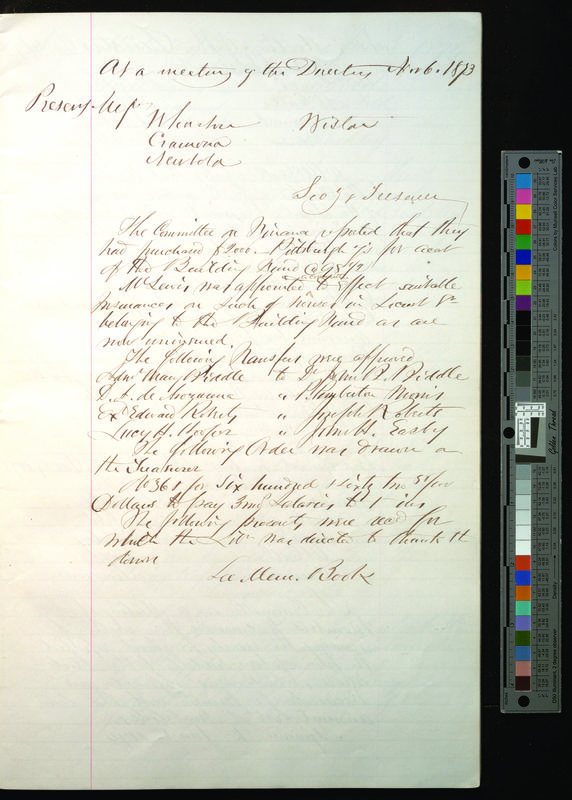 At a meeting of the Directors Nov 6. 1873
Present. Mess
Wistar
Cramond
Newbold
Secy & Treasurer
The Committee on Finance reported that they
had purchased $2000. Pittsburgh for acct
of the Building Fund @ 98 1/2
Mr Lewis was appointed to effect suitable
Insurances on such of houses in Locust St
belonging to the Building Fund as are
now uninsured.
The following Transfers were approved
Mary Biddle to Dr John B. Biddle
" Pemberton Morris
Exr Edward Roberts " Joseph Roberts
Lucy H. Hooper " John H. Easby
The following Order was drawn on
the Treasurer
No 368 for Six hundred & sixty two 50/100
Dollars to pay 3 mos Salaries to 1 ins
The following presents were recd for
which the Libn was directed to thank the
donors
See Mem. Book